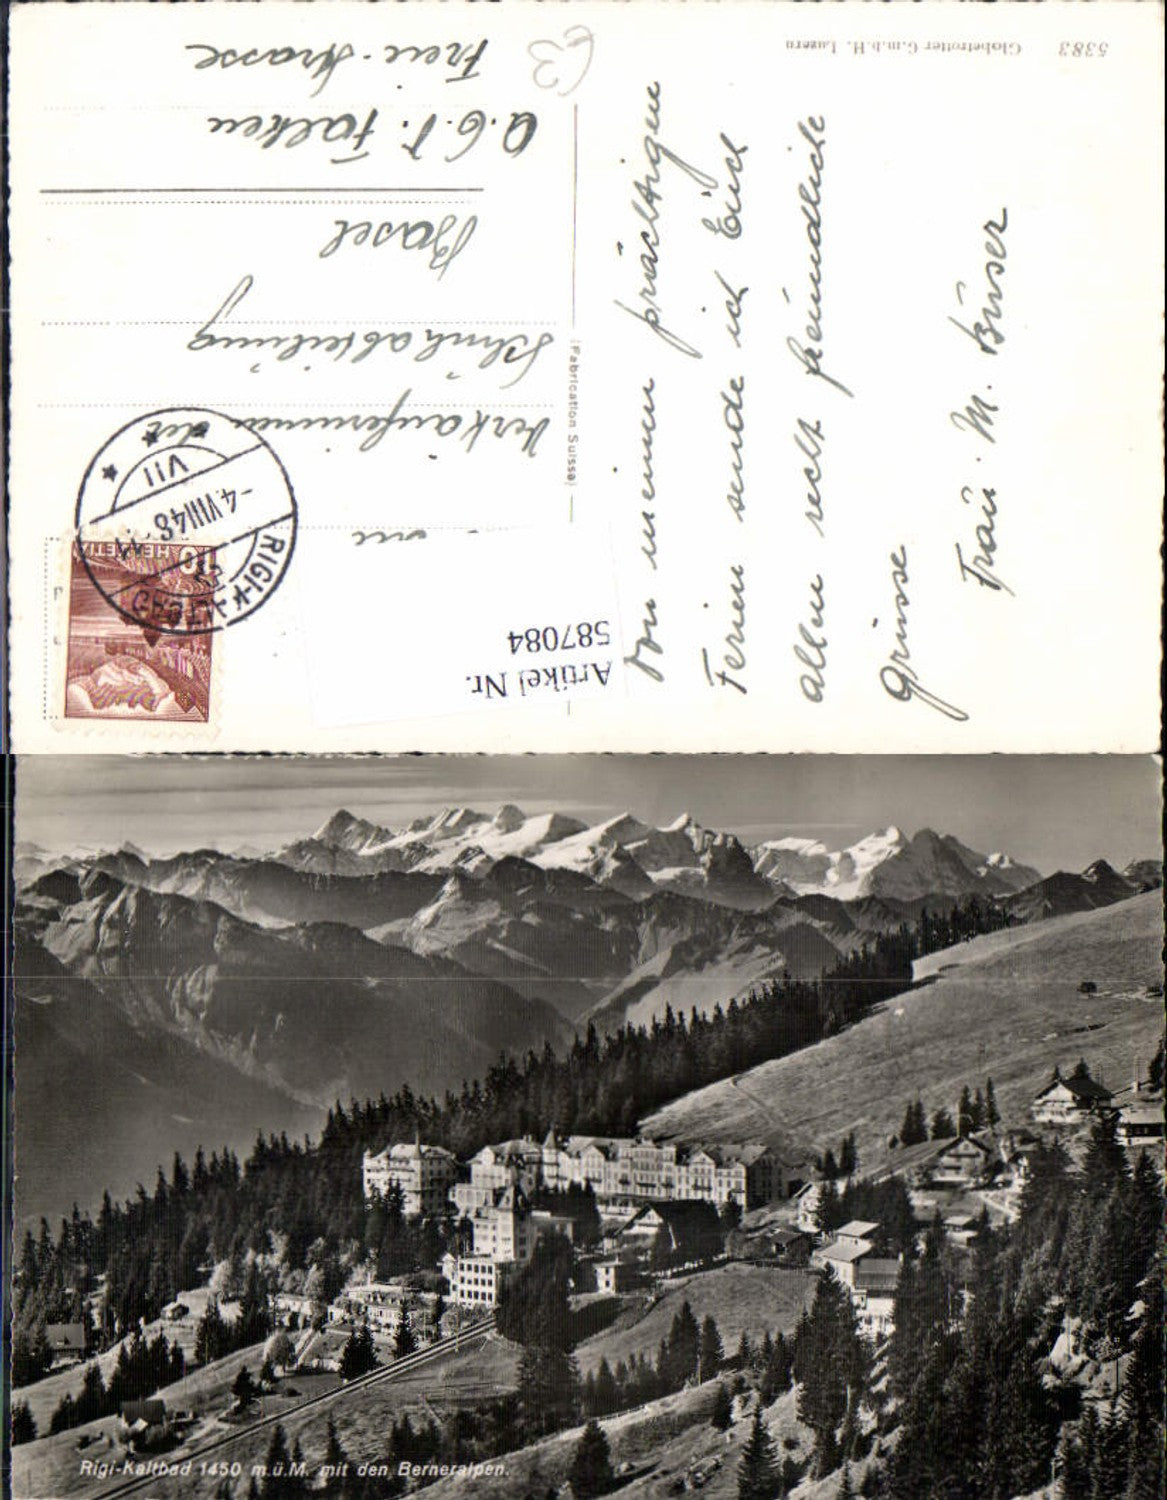 5383 Globetrotter G.m.b.H. Luzern
Von meinen prächtigen
Ferien sende ich Euch
allen recht freundliche
Grüsse
Frau M. Buser
(Fabrication Suisse)
63
HELVETIA
10
RIGI-KALTBAD
-4.VIII 48
VII
Artikel Nr.
587084
Verkäuferinnen der
Schuhabteilung
Basel
A.C.V. Falken
Freie-Strasse
Rigi-Kaltbad 1450 m.ü.M. mit den Berneralpen.